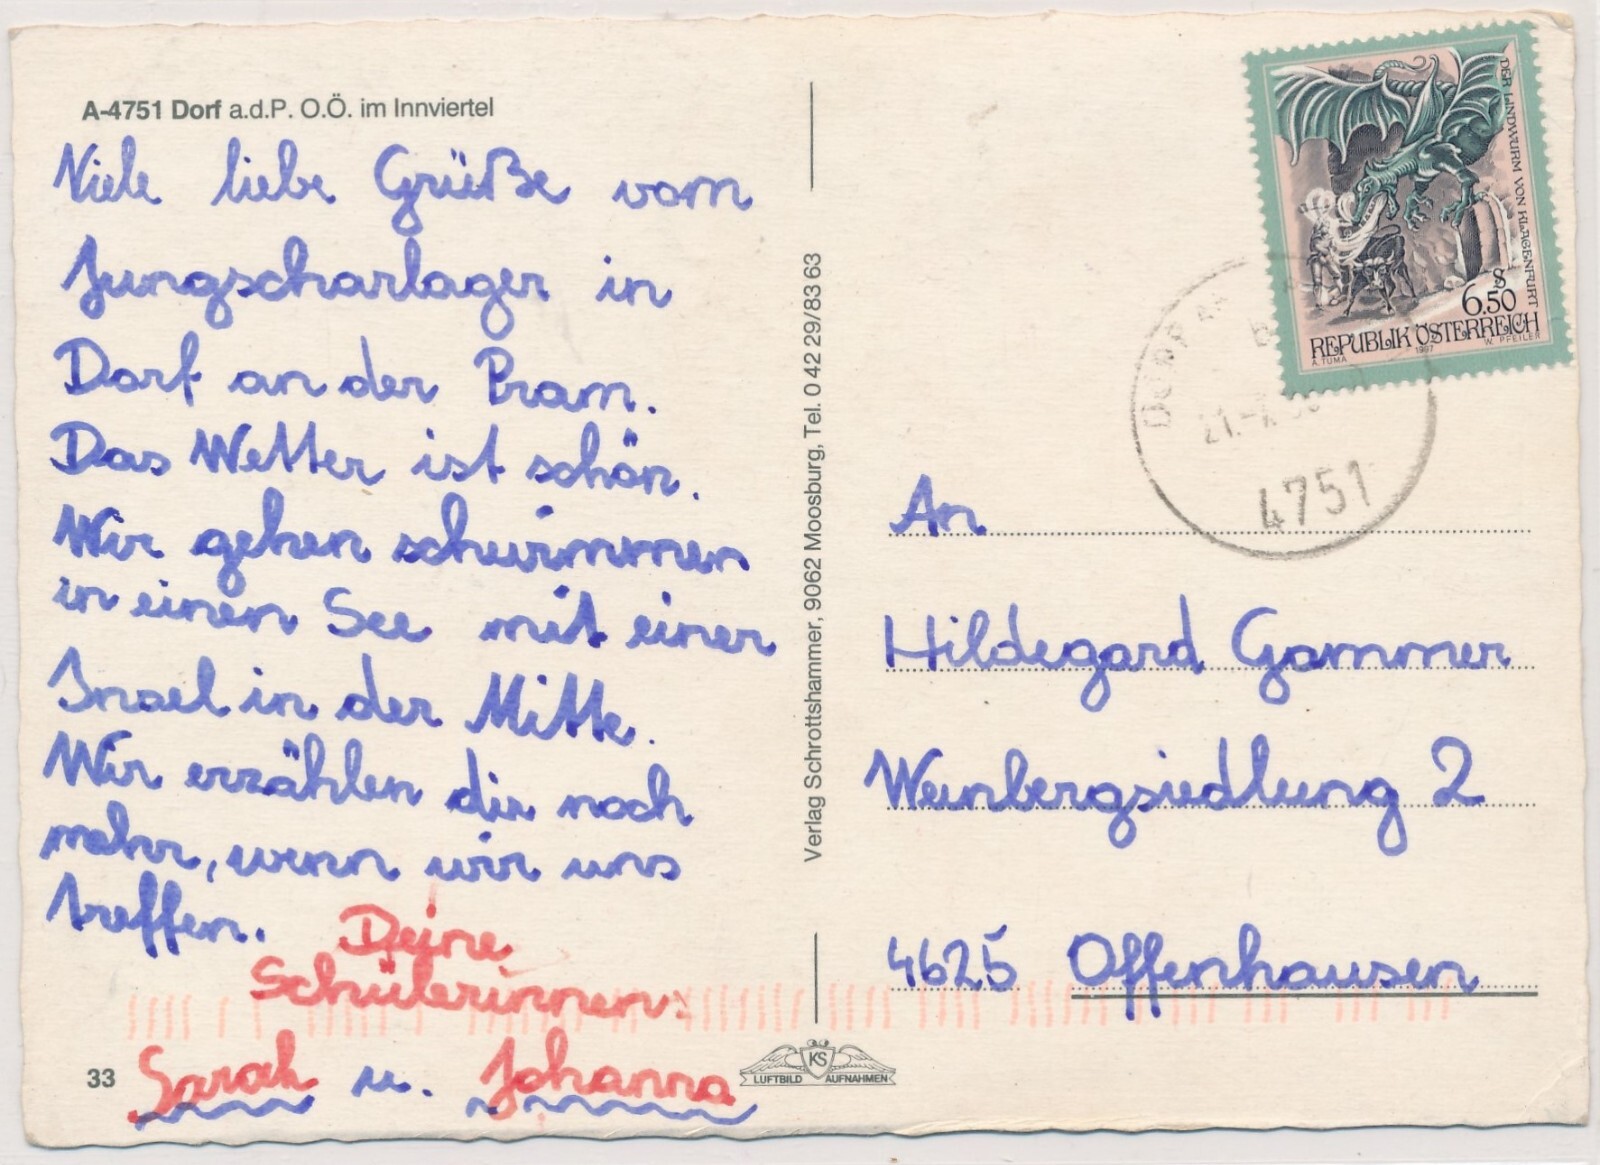 A-4751 Dorf a.d.P. O.Ö. im Innviertel
Viele liebe Grüße vom
Jungscharlager in
Dorf an der Pram.
Das Wetter ist schön.
Wir gehen schwimmen
in einen See mit einer
Insel in der Mitte.
Wir erzählen dir noch
mehr, wenn wir uns
treffen.
Deine
Schülerinnen:
Sarah u. Johanna
33
Verlag Schrottshammer, 9062 Moosburg, Tel. 0 42 29/83 63
KS
LUFTBILD AUFNAHMEN
DER LINDWURM VON KLAGENFURT
S
6.50
REPUBLIK ÖSTERREICH
A. TUMA 1997 W. PFEILER
DORF
21.
4751
An
Hildegard Gammer
Weinbergsiedlung 2
4625 Offenhausen